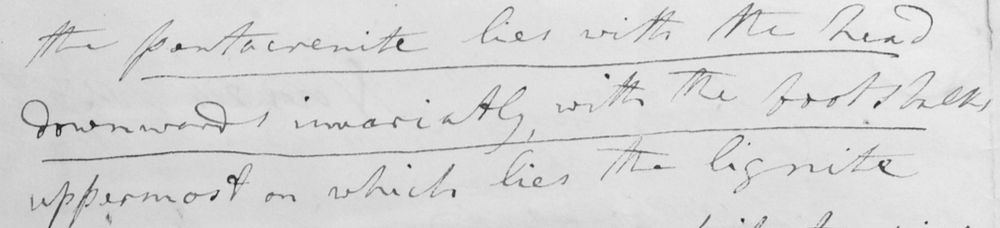 the pentacrenite lies with the head
downwards invariably, with the footstalks
uppermost on which lies the lignite